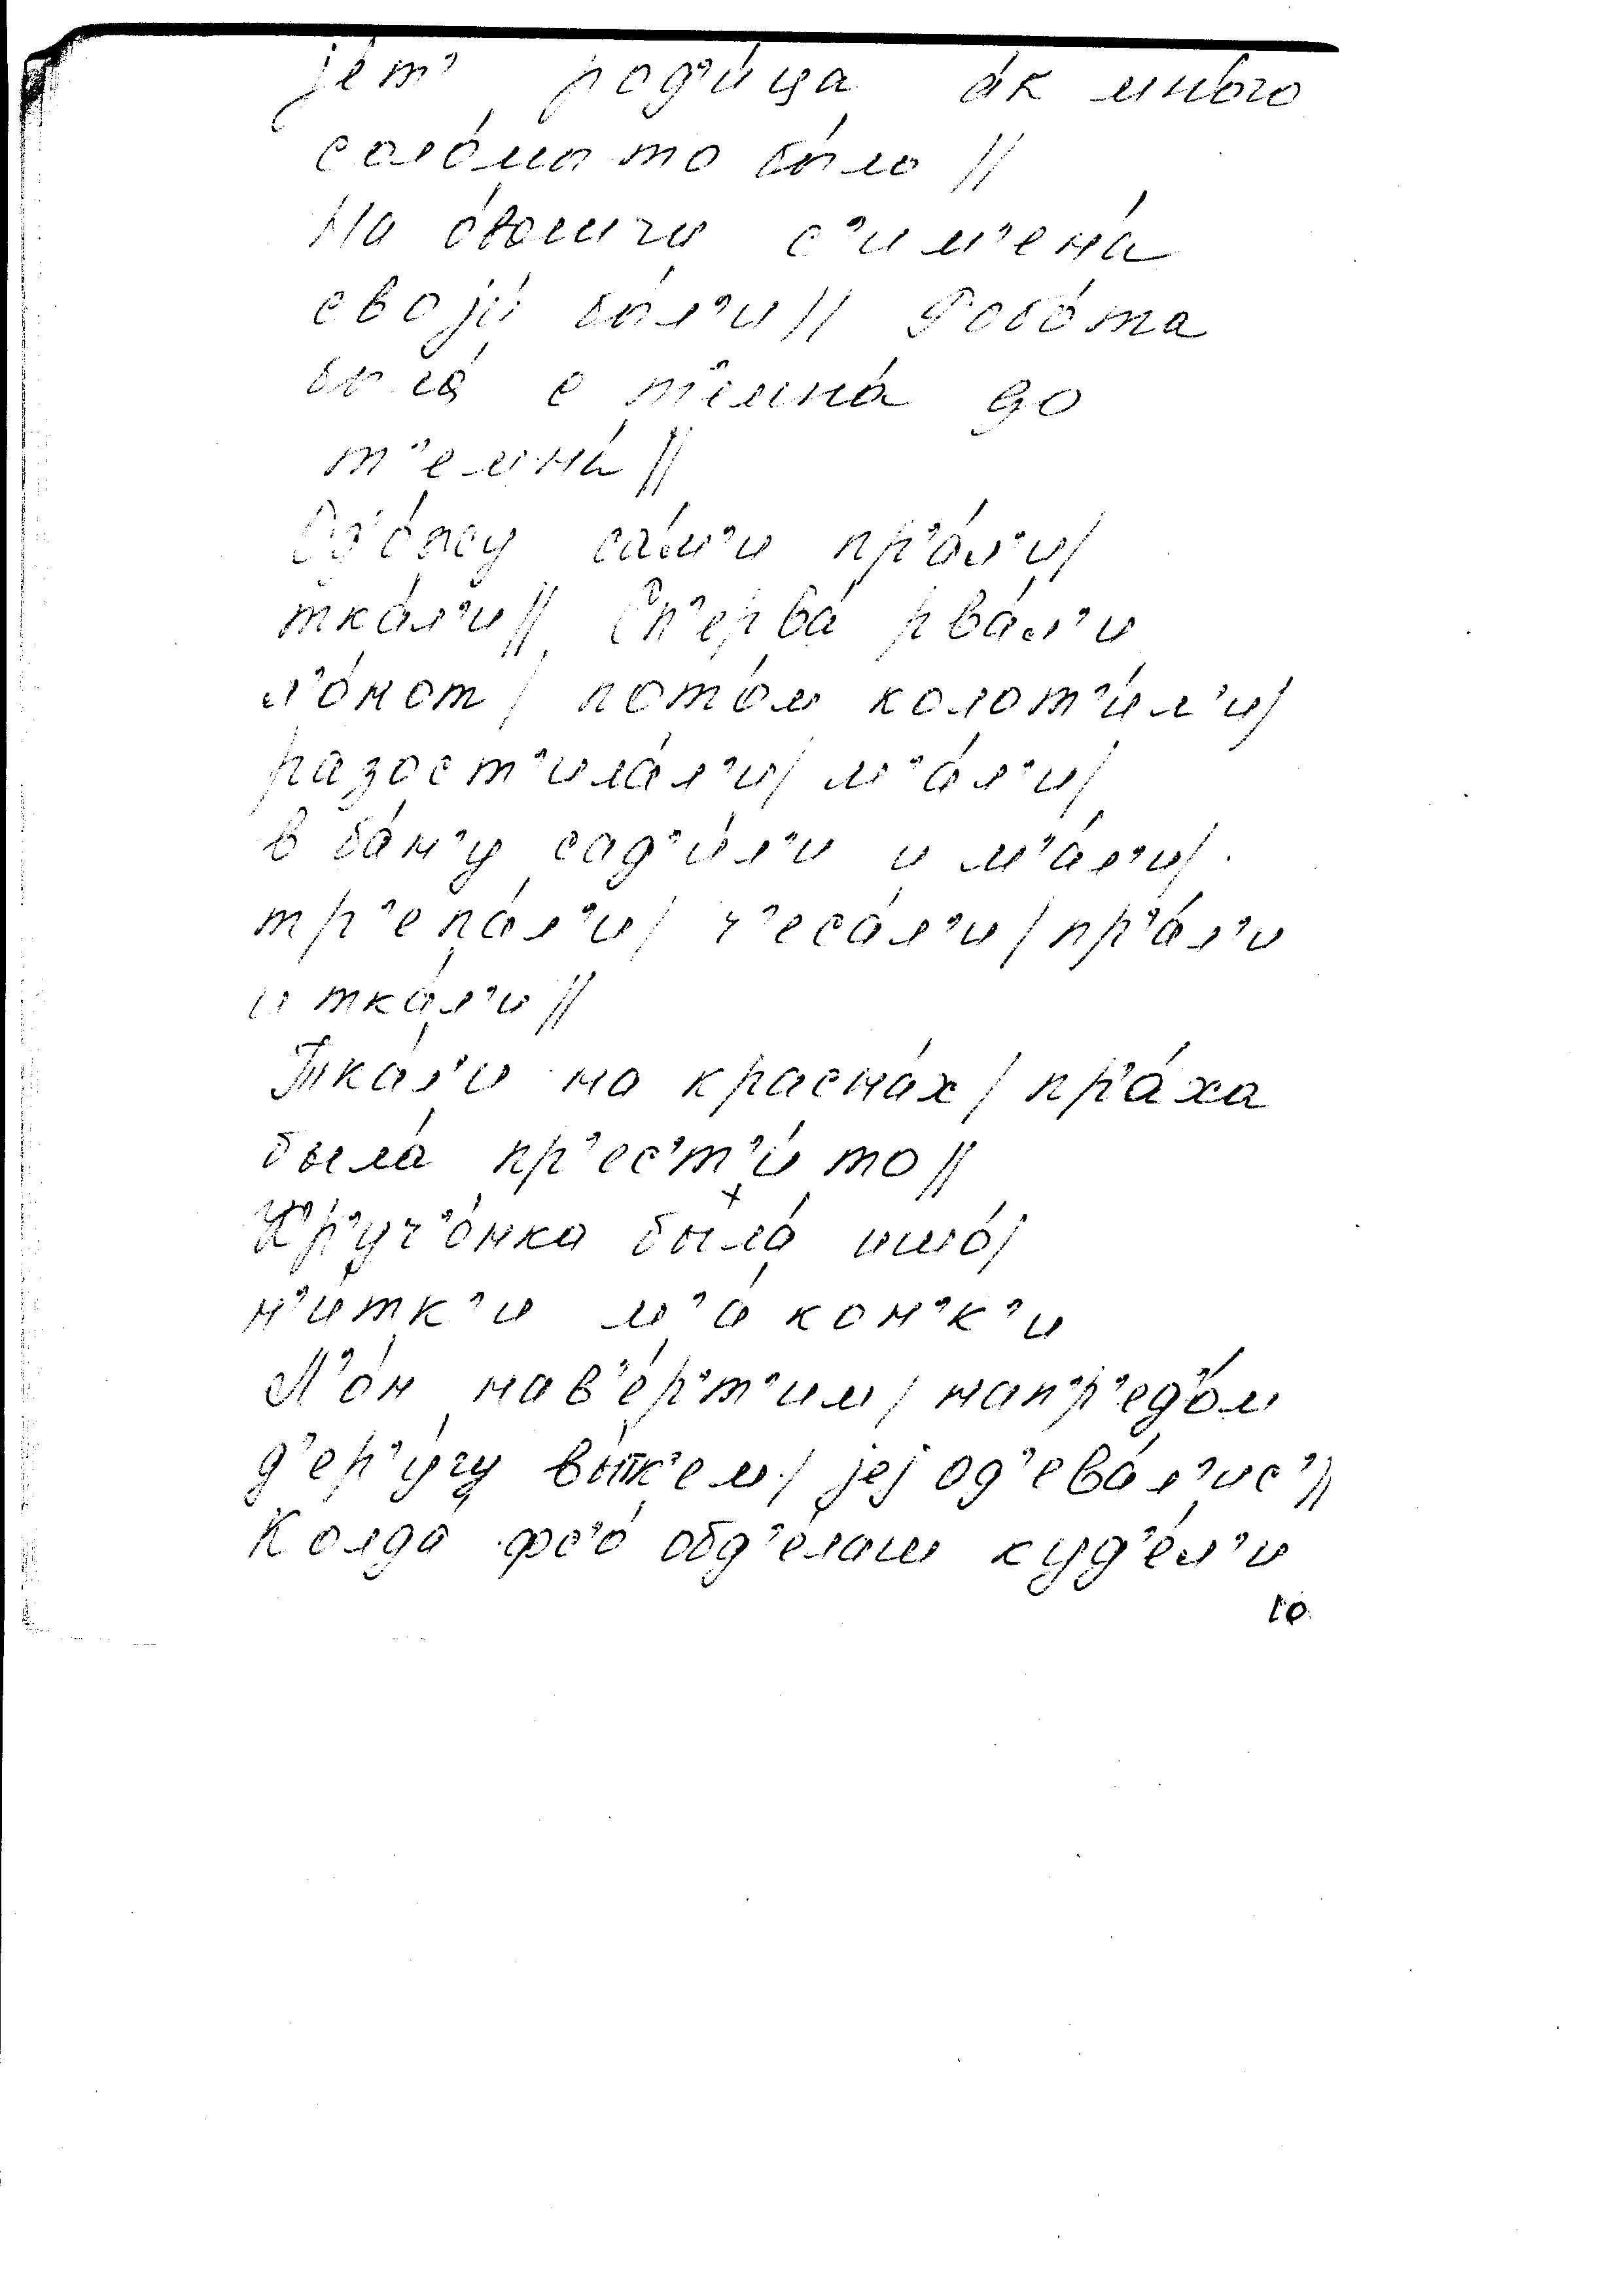 је́т' род'и́ца а́к мно́го
соло́мы то бы́ло //
На о́вошчи с'им'ена́
своји́ бы́л'и // Робо́та
была́ с т'емна́ до
т'емна́ //
Од'о́жу са́м'и пр'а́л'и /
тка́л'и // Сп'ерва́ рва́л'и
л'о́нот / пото́м колот'и́л'и /
разост'ила́л'и / м'а́л'и /
в ба́н'у сад'и́л'и и м'а́л'и /
тр'епа́л'и / ч'еса́л'и / пр'а́л'и
и тка́л'и //
Тка́л'и на красна́х / пр'а́ха
была́ пр'ес'т'и́ то //
Кр'уч'о́нка была́ ишо́ /
н'и́тк'и м'а́кон'к'и
Л'о́н нав'е́р'т'им / нап'р'ед'о́м
д'ер'у́гу вы́тк'ем / јеј од'ева́л'ис' //
Колда́ фс'о́ обд'е́лаш куд'е́л'и
10